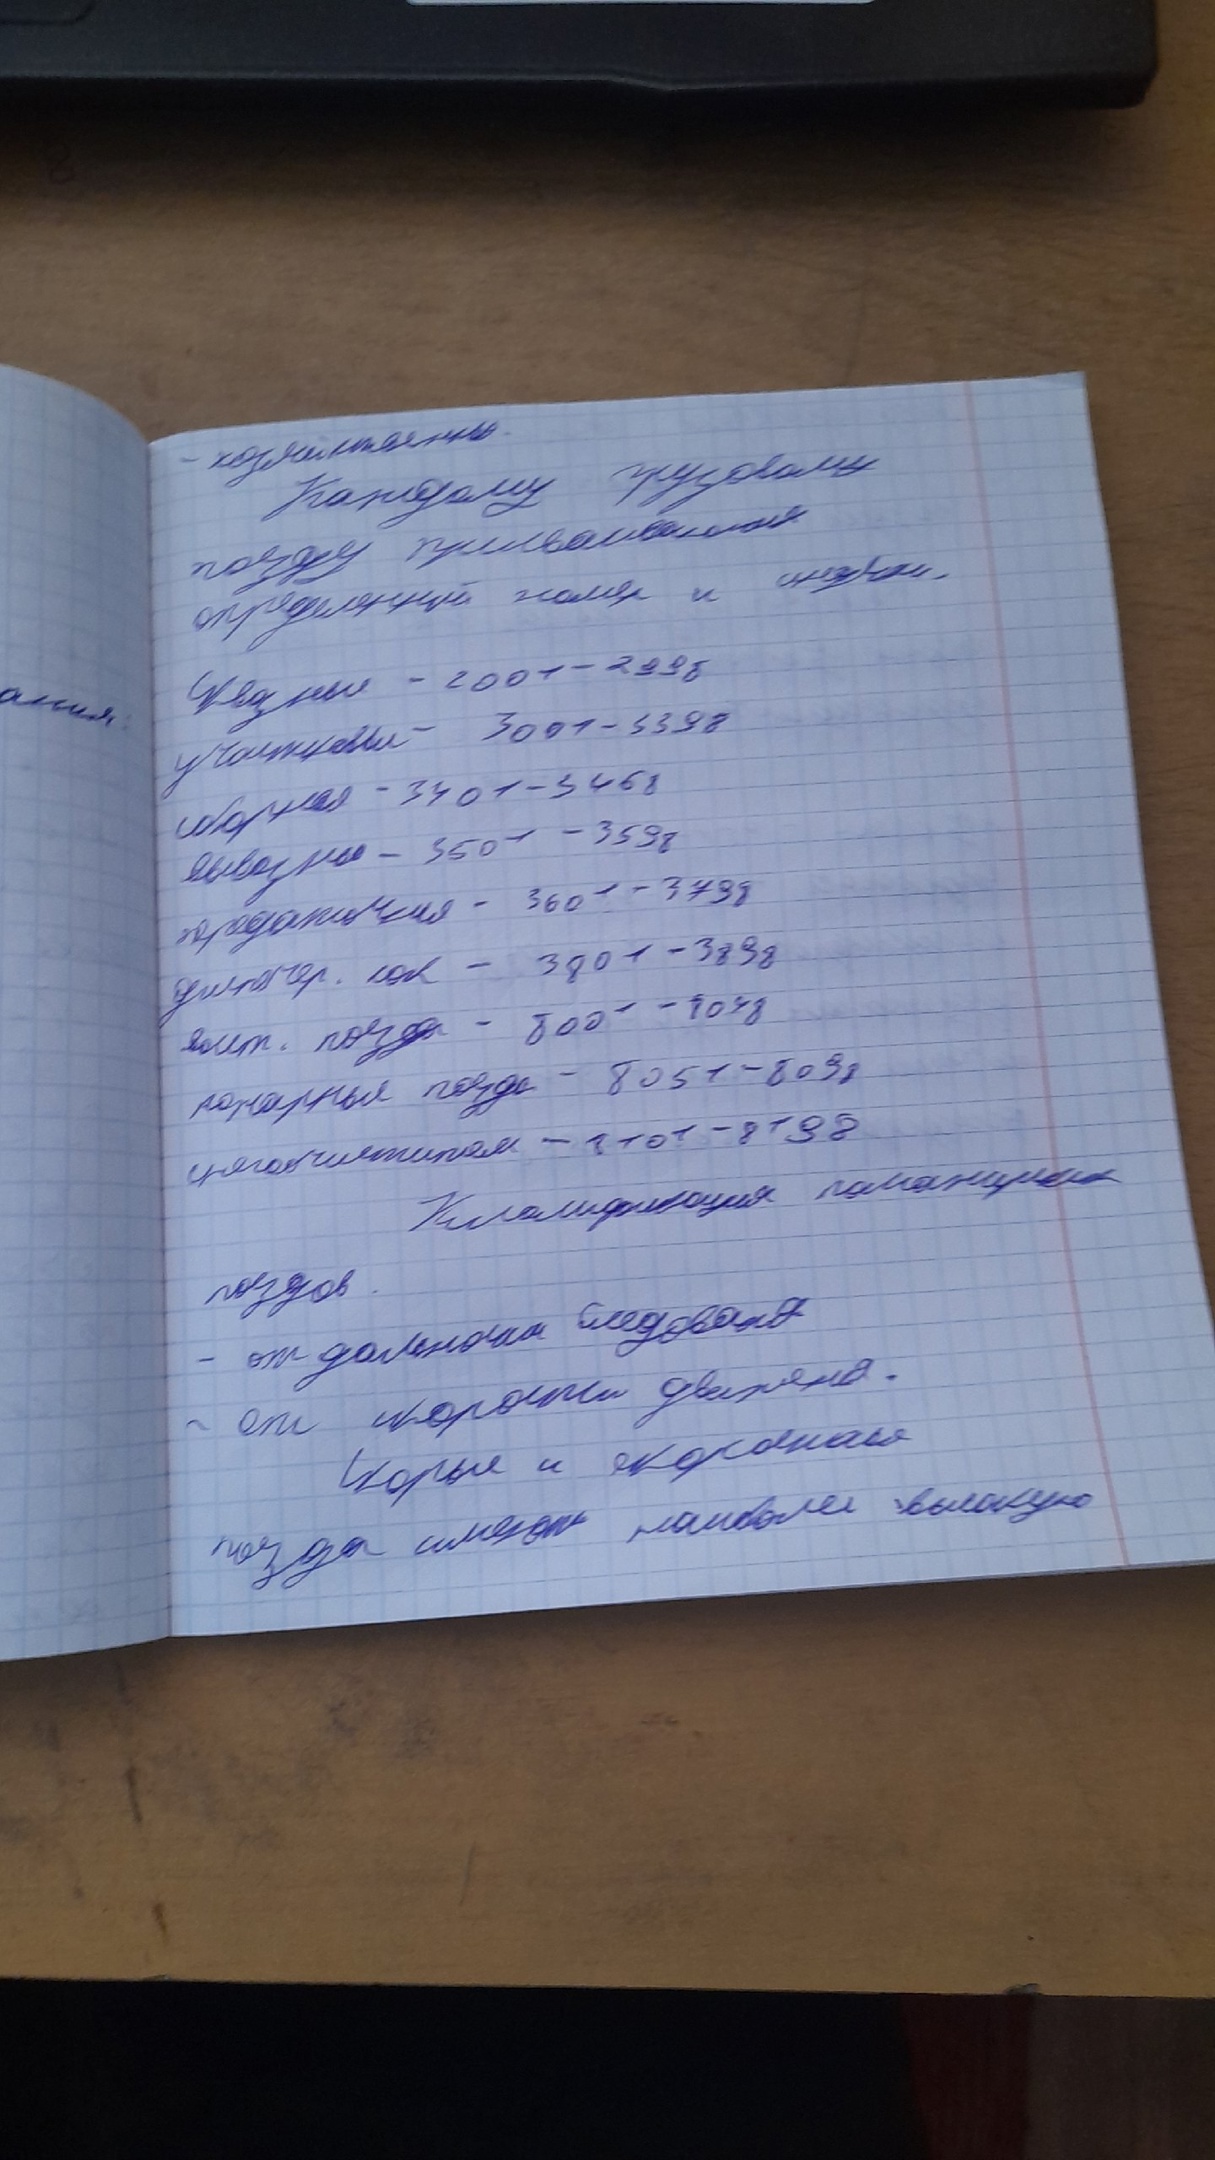 ания:
- хозяйственны.
Каждому грузовому
поезду присваивается
определенный номер и индекс.
Сквозные - 2001-2998
участковые - 3001-3398
сборные - 3401-3468
вывозные - 3501-3598
передаточные - 3601-3798
диспетчер. лок - 3801-3898
восст. поезда - 8001-8048
пожарные поезда - 8051-8098
снегоочистители - 8101-8198
Классификация пассажирских
поездов.
- от дальности следования
- от скорости движения.
Скорые и скоростные
поезда имеют наиболее высокую